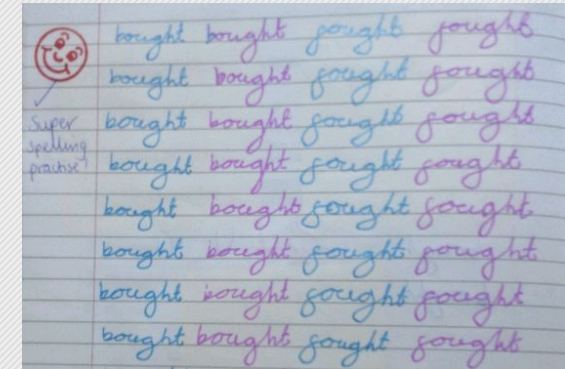 bought bought fought fought
bought bought fought fought
Super
spelling
practise!
bought bought fought fought
bought bought fought fought
bought bought fought fought
bought bought fought fought
bought bought fought fought
bought bought fought fought